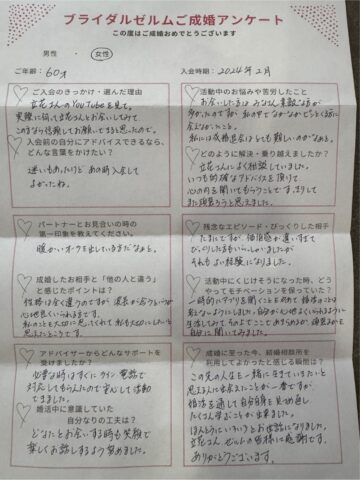 ブライダルゼルムご成婚アンケート
この度はご成婚おめでとうございます
男性 ・ 女性
ご年齢：60才
入会時期：2024年2月
ご入会のきっかけ・選んだ理由
立花さんのYouTubeを見て。
実際に伺って立花さんとお会いしてみて
この方なら信頼してお願いできると思ったので。
入会前の自分にアドバイスできるなら、
どんな言葉をかけたい？
迷いもあったけど あの時入会して
よかったね。
パートナーとお見合いの時の
第一印象を教えてください。
暖かいオーラを出している方だなあと。
成婚したお相手と「他の人と違う」
と感じたポイントは？
性格は全く違うのですが 波長が合うというか
心地良くいられるまです。
私のことを大切に思ってくれて 私も大切にしたいと
思えたところです。
アドバイザーからどんなサポートを
受けましたか？
必要な時はすぐにライン 電話で
対応してもらえたので安心して活動
できました。
婚活中に意識していた
自分なりの工夫は？
どなたとお会いする時も笑顔で
楽しくお話しするよう努めました。
活動中のお悩みや苦労したこと
お会いした方は みなさん素敵な方が
多かったのですが 私の中でなかなかピンとくる方に
会えなかったこと。
私には成婚退会はとても難しいのかなあと。
どのように解決・乗り越えましたか？
立花さんによく相談していました。
いつも的確なアドバイスを頂けて
心の内を聞いてもらうことで すっきりして
また頑張ろうと思えました。
残念なエピソード・びっくりした相手
たまにですが 価値感が違いすぎて
びっくりした方もいらっしゃいましたが
それもよい経験になりました。
活動中にくじけそうになった時、どう
やってモチベーションを保っていた？
一時的にアプリを開くことを初めて 婚活のことは
考えないようにしました。自分が心地よくいられるように
生活してみて そのまでここであきらめるか 頑張るかを
自分に聞いてみました。
成婚に至った今、結婚相談所を
利用してよかったと感じる瞬間は？
この先の人生を一緒に生きていきたいと
思える人に出会えたことが一番ですが
婚活を通して自分自身を見つめ直し
たくさん学ぶことが出来ました。
ほんとうにいろいろとお世話になりました。
立花さん ゼルムの皆様に感謝です。
ありがとうございます。